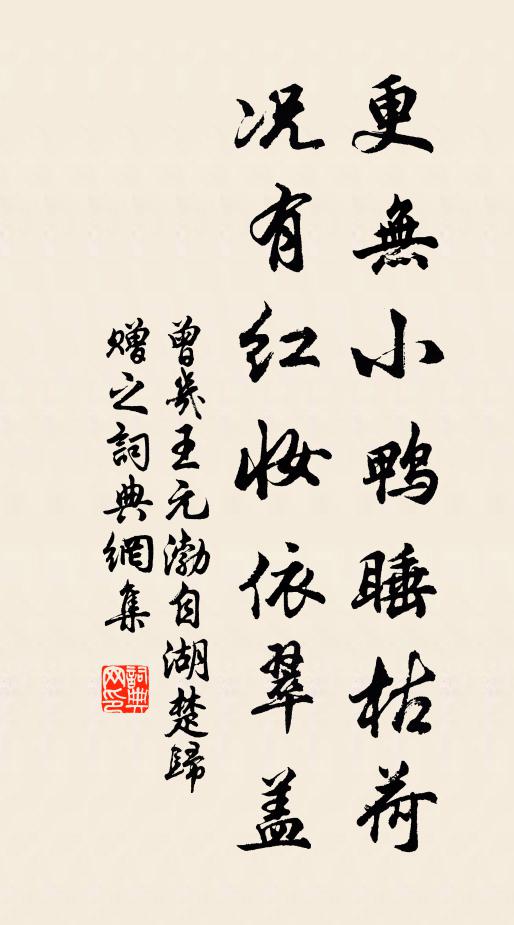 更無小鸭睡枯荷
况有红妝依翠盖
曾幾王元渤自湖楚歸
赠之詞典網集
詞典网印